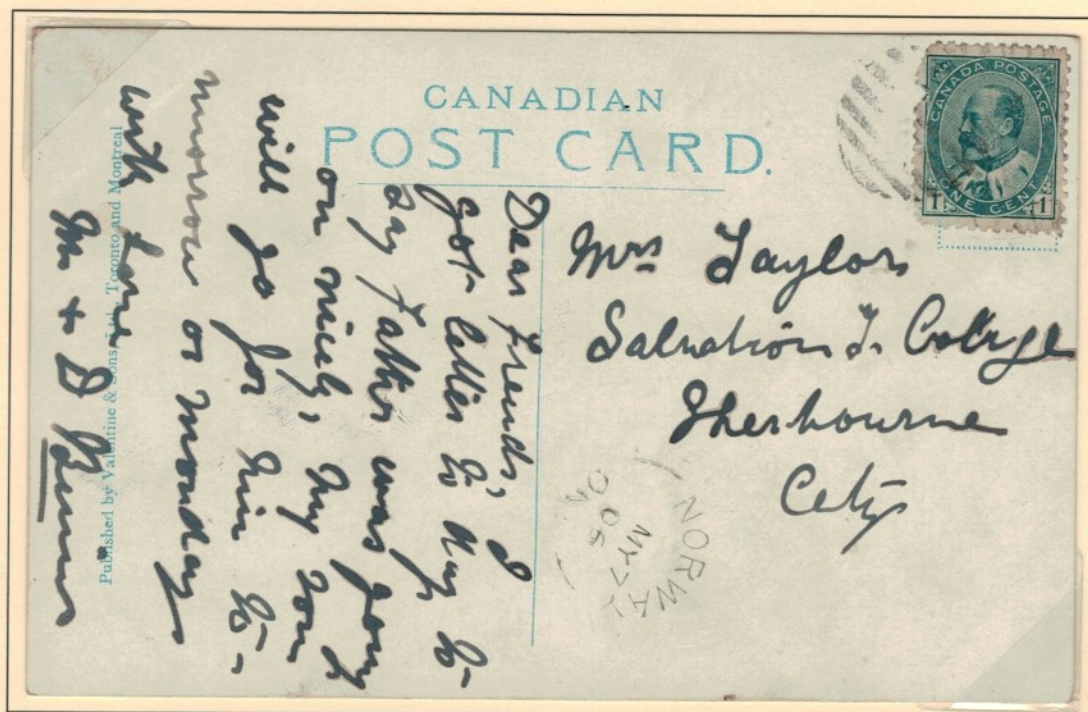 CANADIAN
POST CARD.
CANADA POSTAGE
1 ONE CENT 1
Mrs Taylor
Salvation T. College
Sherbourne
City
NORWAY
MY 7
06
ON
Dear Friends, I
got letter to day to
say Father was going
on nicely, My son
will go for him to-
morrow or monday
with love
Mr + D
Published by Valentine & Sons, Ltd., Toronto and Montreal